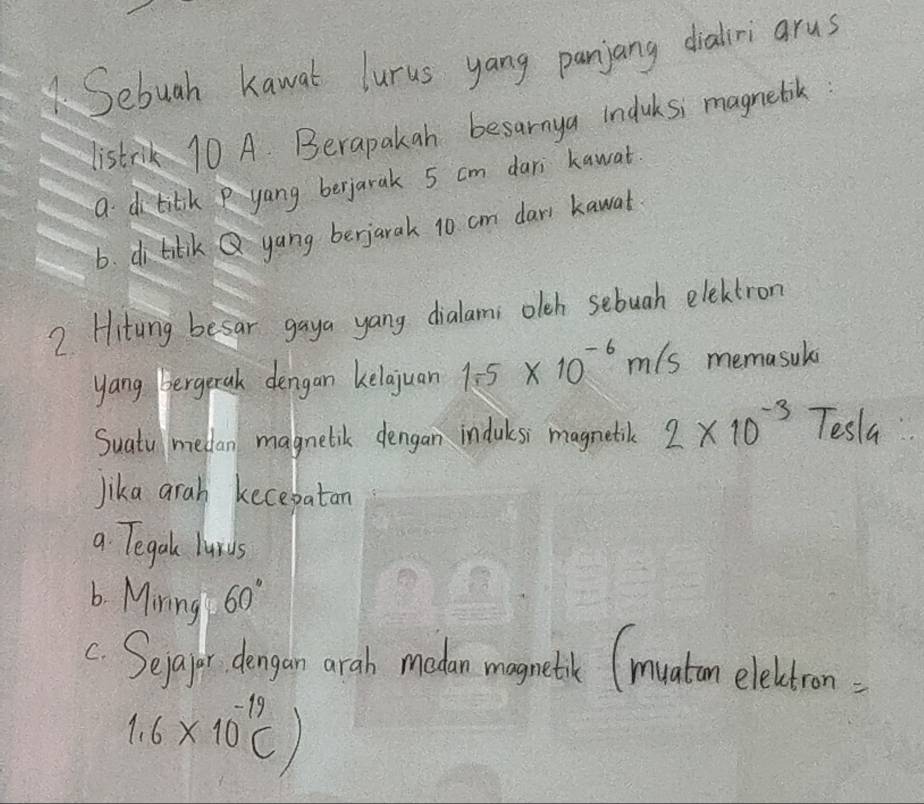 1. Sebuah kawat lurus yang panjang dialiri arus
listrik 10 A. Berapakah besarnya induksi magnetik :
a. di titik P yang berjarak 5 cm dari kawat.
b. di titik Q yang berjarak 10 cm dari kawat.
2. Hitung besar gaya yang dialami oleh sebuah elektron
yang bergerak dengan kelajuan 1.5 × 10⁻⁶ m/s memasuki
suatu medan magnetik dengan induksi magnetik 2 × 10⁻³ Tesla :
jika arah kecepatan
a. Tegak lurus
b. Miring 60°
c. Sejajar dengan arah medan magnetik (muatan elektron =
1.6 × 10⁻¹⁹ C)